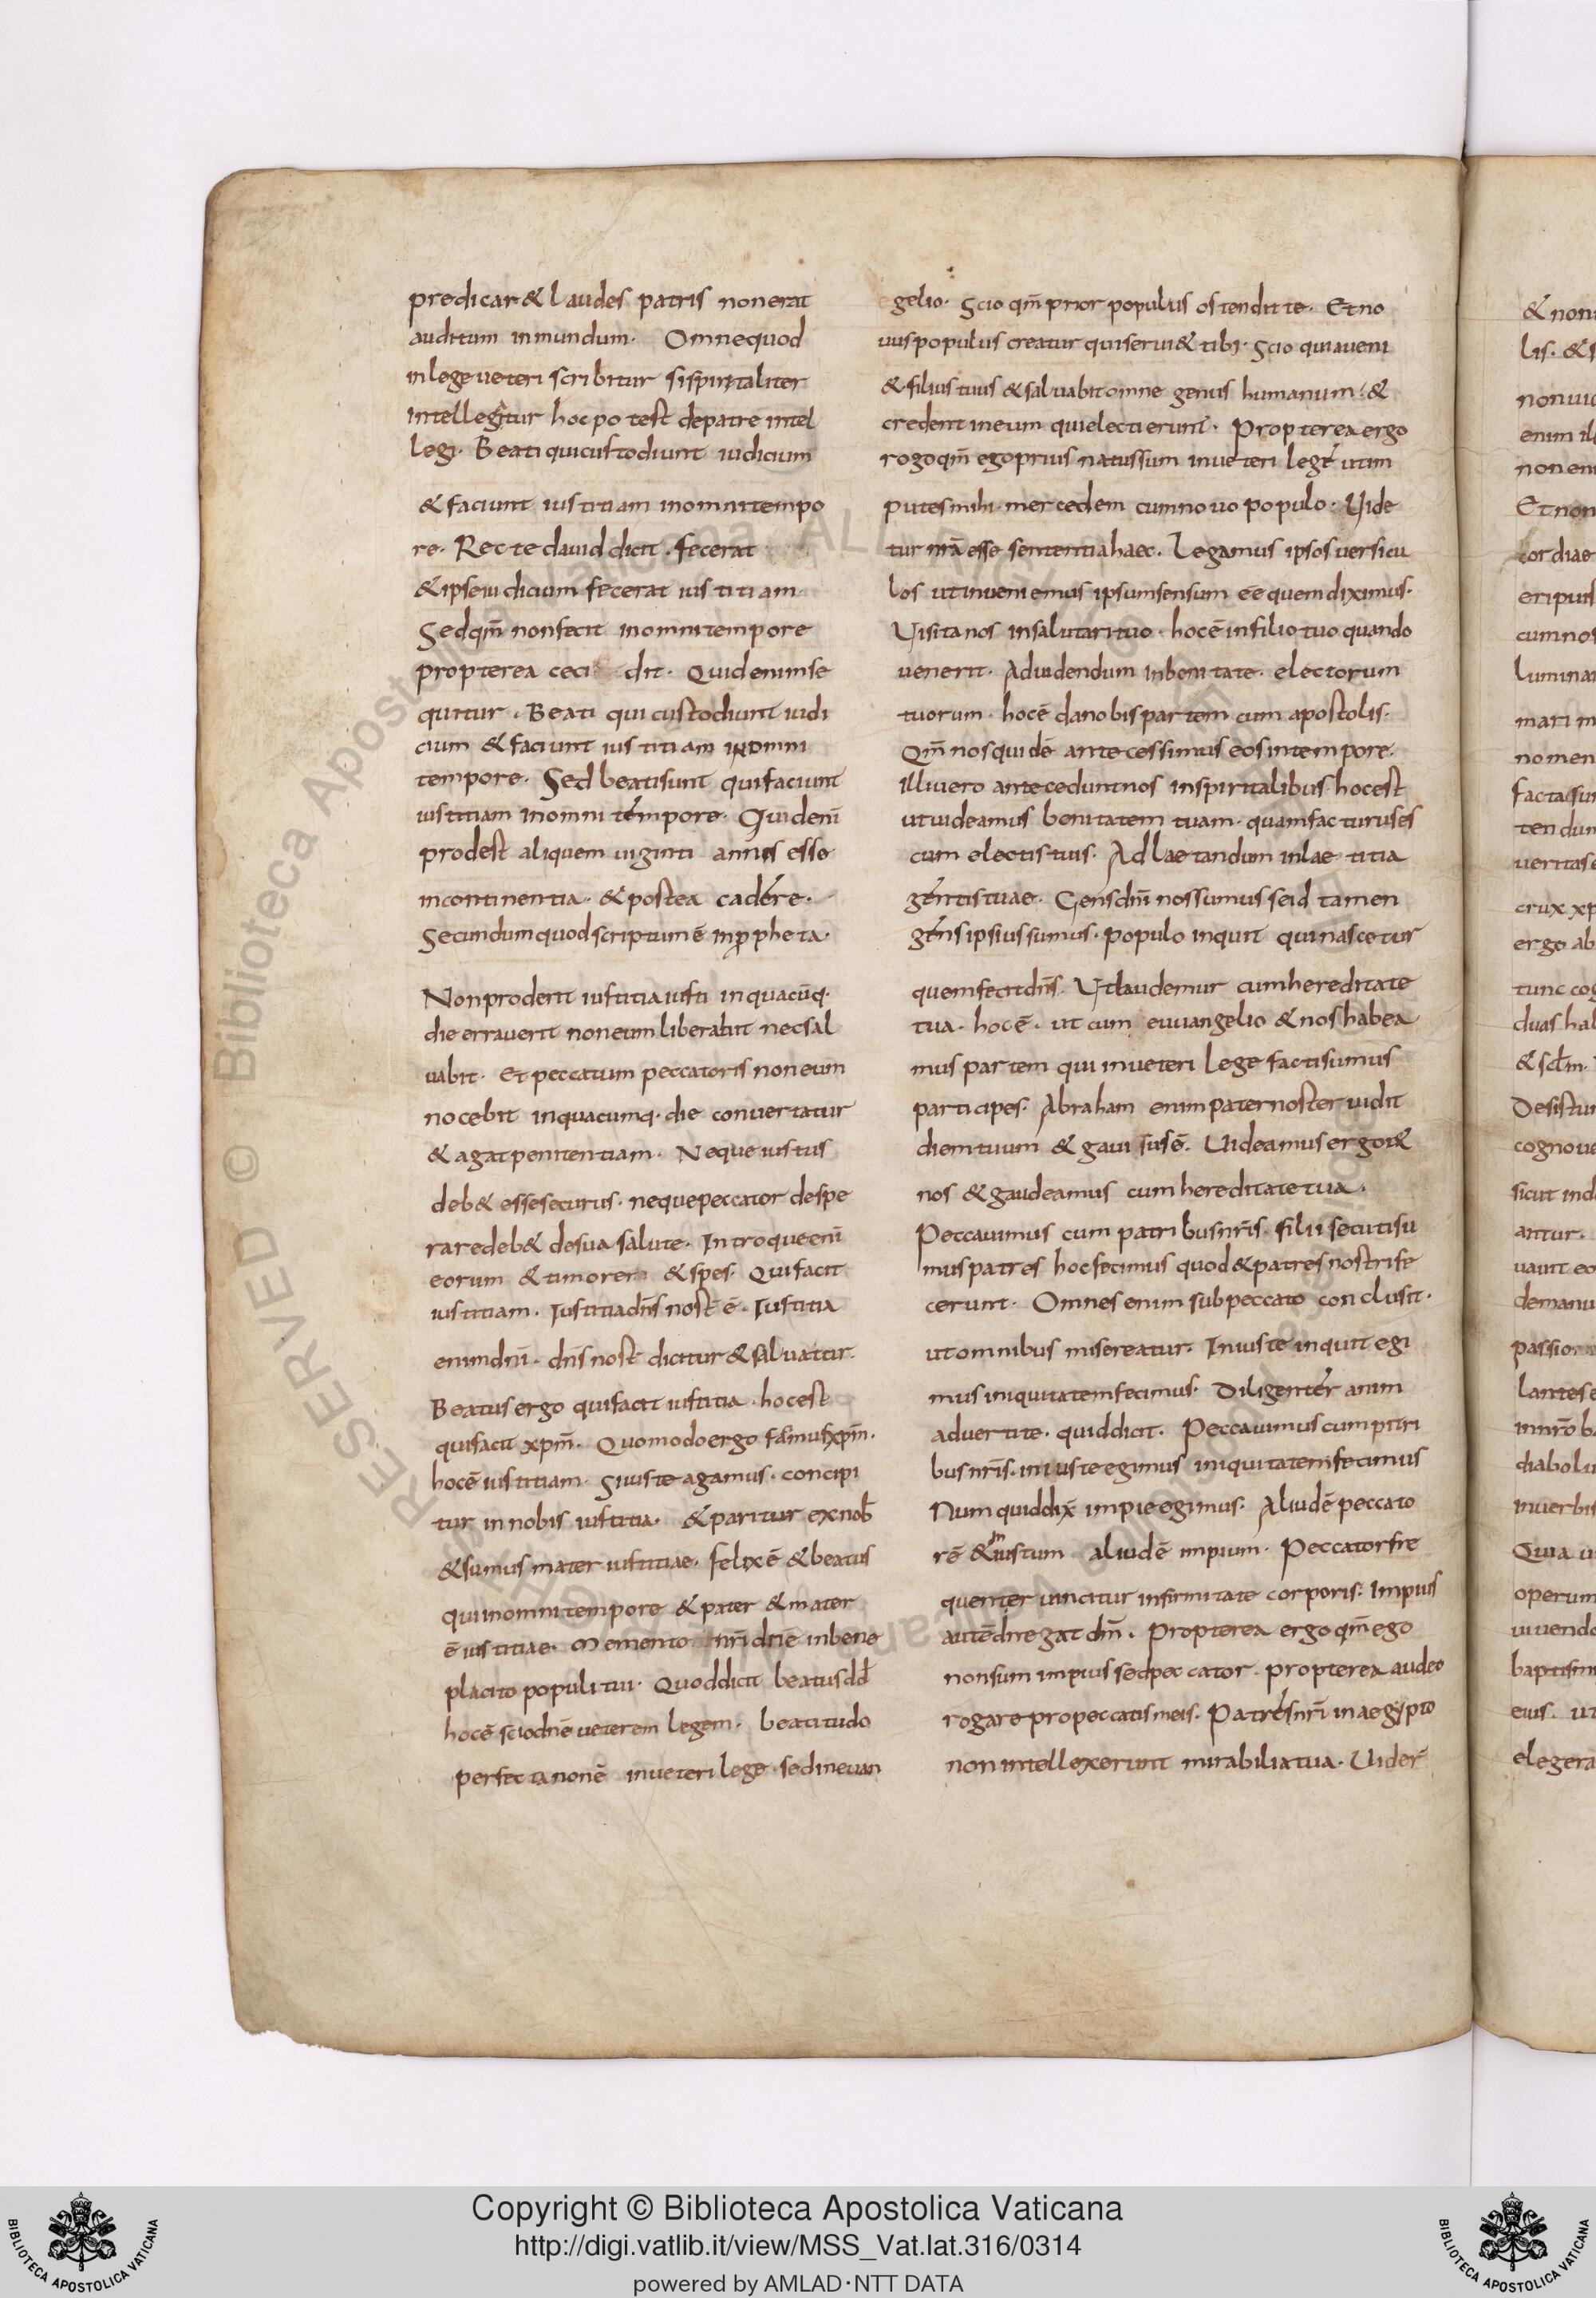 predicar& laudes patris non erat
auditum in mundum. Omne quod
in lege ueteri scribitur si spiritaliter
intellegitur hoc potest de patre intel
legi. Beati qui custodiunt iudicium
& faciunt iustitiam in omni tempo
re. Recte dauid dicit. fecerat
& ipse iudicium fecerat iustitiam
Sed qm̄ non fecit in omni tempore
propterea ceci dit. Quid enim se
quitur. Beati qui custodiunt iudi
cium & faciunt iustitiam in omni
tempore. Sed beati sunt qui faciunt
iustitiam in omni témpore. Quid eni̅
prodest aliquem uiginti annis esse
in continentia. & postea cadére.
Secundum quod scriptum ē in propheta.
Non proderit iustitia iusti in quacūq.
die errauerit non eum liberabit nec sal
uabit. Et peccatum peccatoris non eum
nocebit in quacumq. die conuertatur
& agat penitentiam. Neque iustus
deb& esse securus. neque peccator despe
rare deb& de sua salute. In troque eni̅
eorum & timorem & spes. Qui facit
iustitiam. Iustitia dn̄s nost̄ ē. Iustitia
enim dn̄i. dn̄s nost̄ dicitur & saluatur.
Beatus ergo qui facit iustitia. hoc est
qui facit xpm̄. Quomodo ergo facimus xpm̄.
hoc ē iustitiam. Si iuste agamus. concipi
tur in nobis iustitia. & paritur ex nob̄
& sumus mater iustitiae. felix ē & beatus
qui in omni tempore & pater & mater
ē iustitiae. Memento nr̄i dn̄e in bene
placito populi tui. Quod dicit beatus dd̄
hoc ē scio dn̄e ueterem legem. beatitudo
perfecta non ē in ueteri lege. sed in euan
gelio. Scio qm̄ prior populus ostendit te. Et no
uus populus creatur qui serui& tibi. Scio quia ueni
& filius tuus & saluabit omne genus humanum. &
credent in eum qui electi erunt. Propterea ergo
rogo qm̄ ego prius natus sum in ueteri legé ut im
putes mihi. mercedem cum nouo populo. Uide
tur nr̄ā esse sententia haec. Legamus ipsos uersicu
los ut inueniemus ipsum sensum ēe quem diximus.
Uisita nos in salutari tuo. hoc ē in filio tuo quando
uenerit. Ad uidendum in bonitate. electorum
tuorum. hoc ē da nobis partem cum apostolis.
Qm̄ nos quidē antecessimus eos in tempore.
illi uero antecedunt nos in spiritalibus. hoc est
ut uideamus bonitatem tuam. quam facturus es
cum electis tuis. Ad laetandum in laetitia
géntis tuae. Gens dn̄i nos sumus seid tamen
géns ipsius sumus. populo inquit qui nascetur
quem fecit dn̄s. Ut laudemur cum hereditate
tua. hoc ē. ut cum euuangelio & nos habea
mus partem qui in ueteri lege facti sumus
participes. Abraham enim pater noster uidit
diem tuum & gauisus ē. Uideamus ergo &
nos & gaudeamus cum hereditate tua.
Peccauimus cum patribus nr̄is. filii secuti su
mus patres hoc fecimus quod & patres nostri fe
cerunt. Omnes enim sub peccato conclusit.
ut omnibus misereatur. Iniuste inquit egi
mus iniquitatem fecimus. Diligentér anim
aduertite. quid dicit. Peccauimus cum patri
bus nr̄is. iniuste egimus iniquitatem fecimus
Num quid dix̄ impie egimus. Aliud ē peccato
rē & iniustum aliud ē impium. Peccator fre
quenter uincitur infirmitate corporis. Impius
autē dn̄ negat dm̄. Propterea ergo qm̄ ego
non sum impius sed peccator. propterea audeo
rogare pro peccatis meis. Patrés nr̄i in aegypto
non intellexerunt mirabilia tua. Uider
& non
lis. & s
non uid
enim il
non en
Et non
cordiae
eripuis
cum nos
luminar
mari m
nomen
facta su
tendun
ueritas e
crux xp
ergo ab
tunc cog
duas hab
& sc̄lm.
Desistun
cognoue
sicut ind
antur.
uauit eo
de manu
passio
lantes e
in nr̄o b
diabolu
in uerbis
Quia u
operum
uiuendo
baptism
eius. ut
elegera
RESERVED © Biblioteca Apostolica Vaticana. ALL RIGHTS
Copyright © Biblioteca Apostolica Vaticana
http://digi.vatlib.it/view/MSS_Vat.lat.316/0314
powered by AMLAD·NTT DATA
BIBLIOTECA APOSTOLICA VATICANA
BIBLIOTECA APOSTOLICA VATICANA